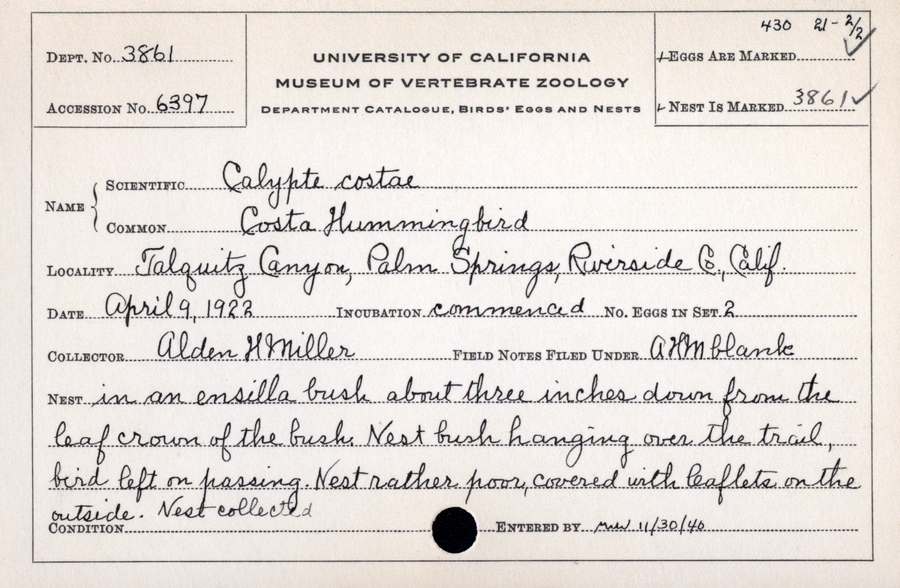 430 21-2/2
DEPT. No. 3861
UNIVERSITY OF CALIFORNIA
EGGS ARE MARKED
MUSEUM OF VERTEBRATE ZOOLOGY
ACCESSION No. 6397
DEPARTMENT CATALOGUE, BIRDS' EGGS AND NESTS
NEST IS MARKED 3861
NAME
SCIENTIFIC Calypte costae
COMMON Costa Hummingbird
LOCALITY Talquitz Canyon, Palm Springs, Riverside Co., Calif.
DATE April 9, 1922 INCUBATION commenced No. EGGS IN SET 2
COLLECTOR Alden H Miller FIELD NOTES FILED UNDER AHM blank
NEST in an ensilla bush about three inches down from the
leaf crown of the bush. Nest bush hanging over the trail,
bird left on passing. Nest rather poor, covered with leaflets on the
outside. Nest collected
CONDITION ENTERED BY 11/30/46